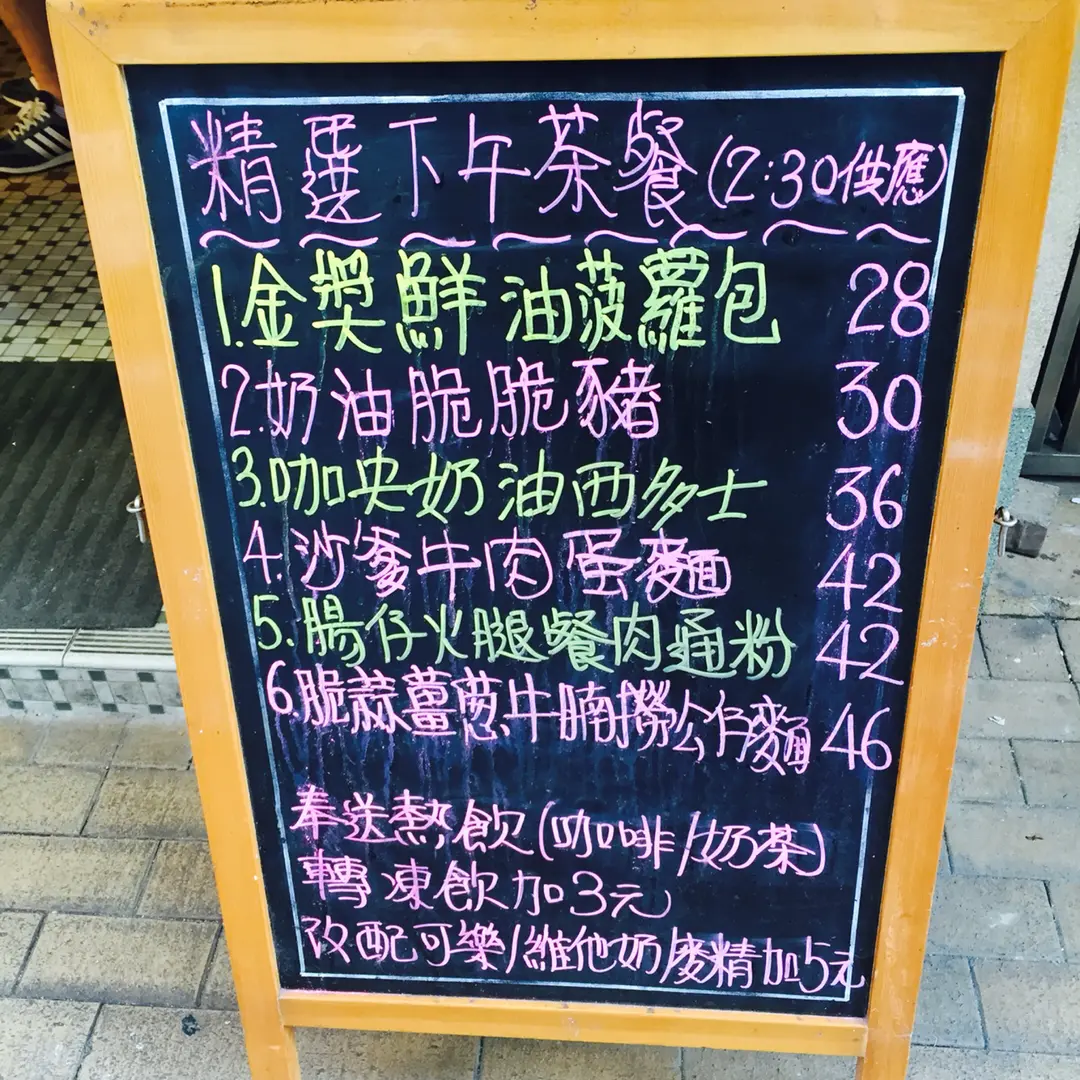 精選下午茶餐(2:30供應)
1.金獎鮮油菠蘿包 28
2.奶油脆脆豬 30
3.咖央奶油西多士 36
4.沙爹牛肉蛋麵 42
5.腸仔火腿餐肉通粉 42
6.脆蒜薑蔥牛腩撈公仔麵 46
奉送熱飲(咖啡/奶茶)
轉凍飲加3元
改配可樂/維他奶/麥精加5元